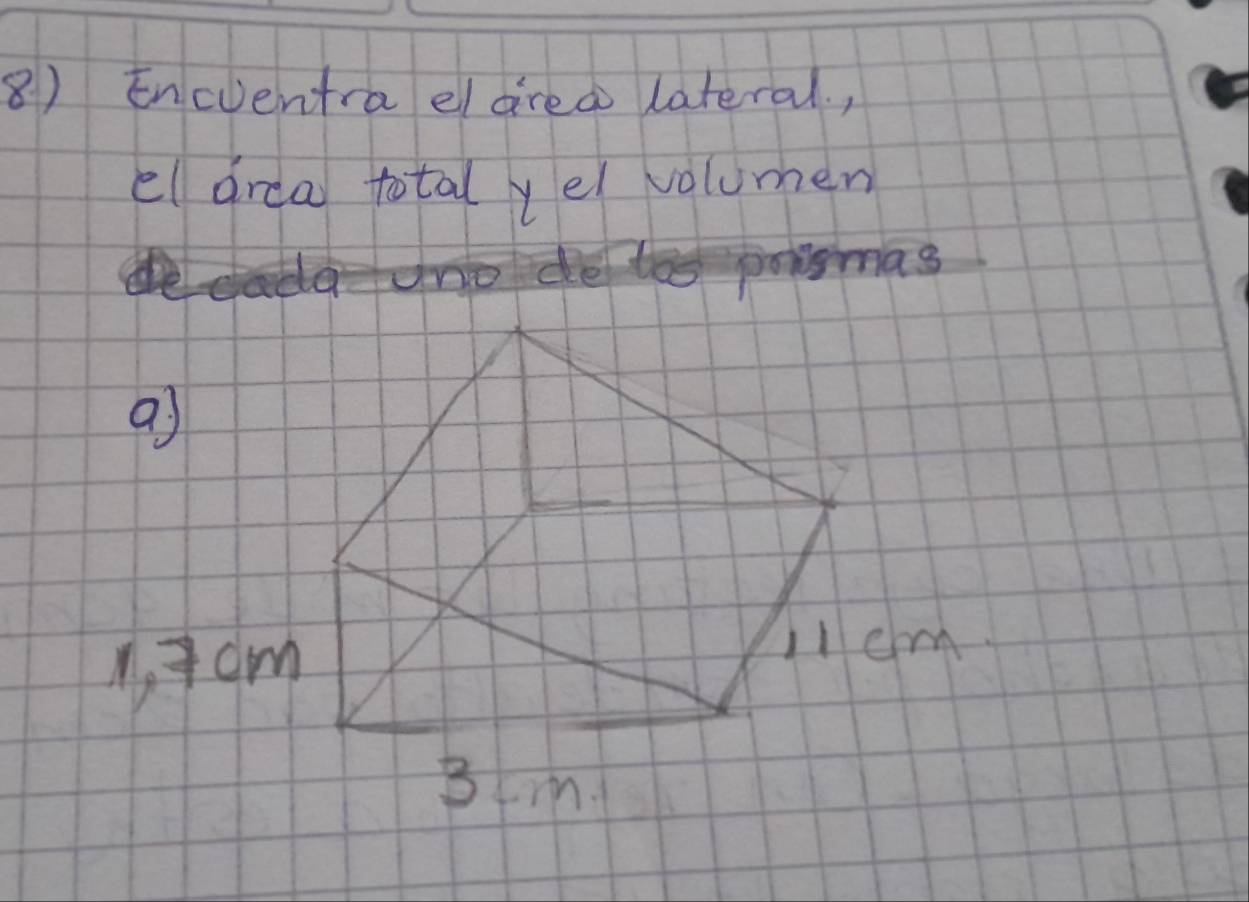 8) Encuentra el área lateral.,
el área total y el volumen
de cada uno de los prismas
a)
1,7 cm
11 cm
3 cm.